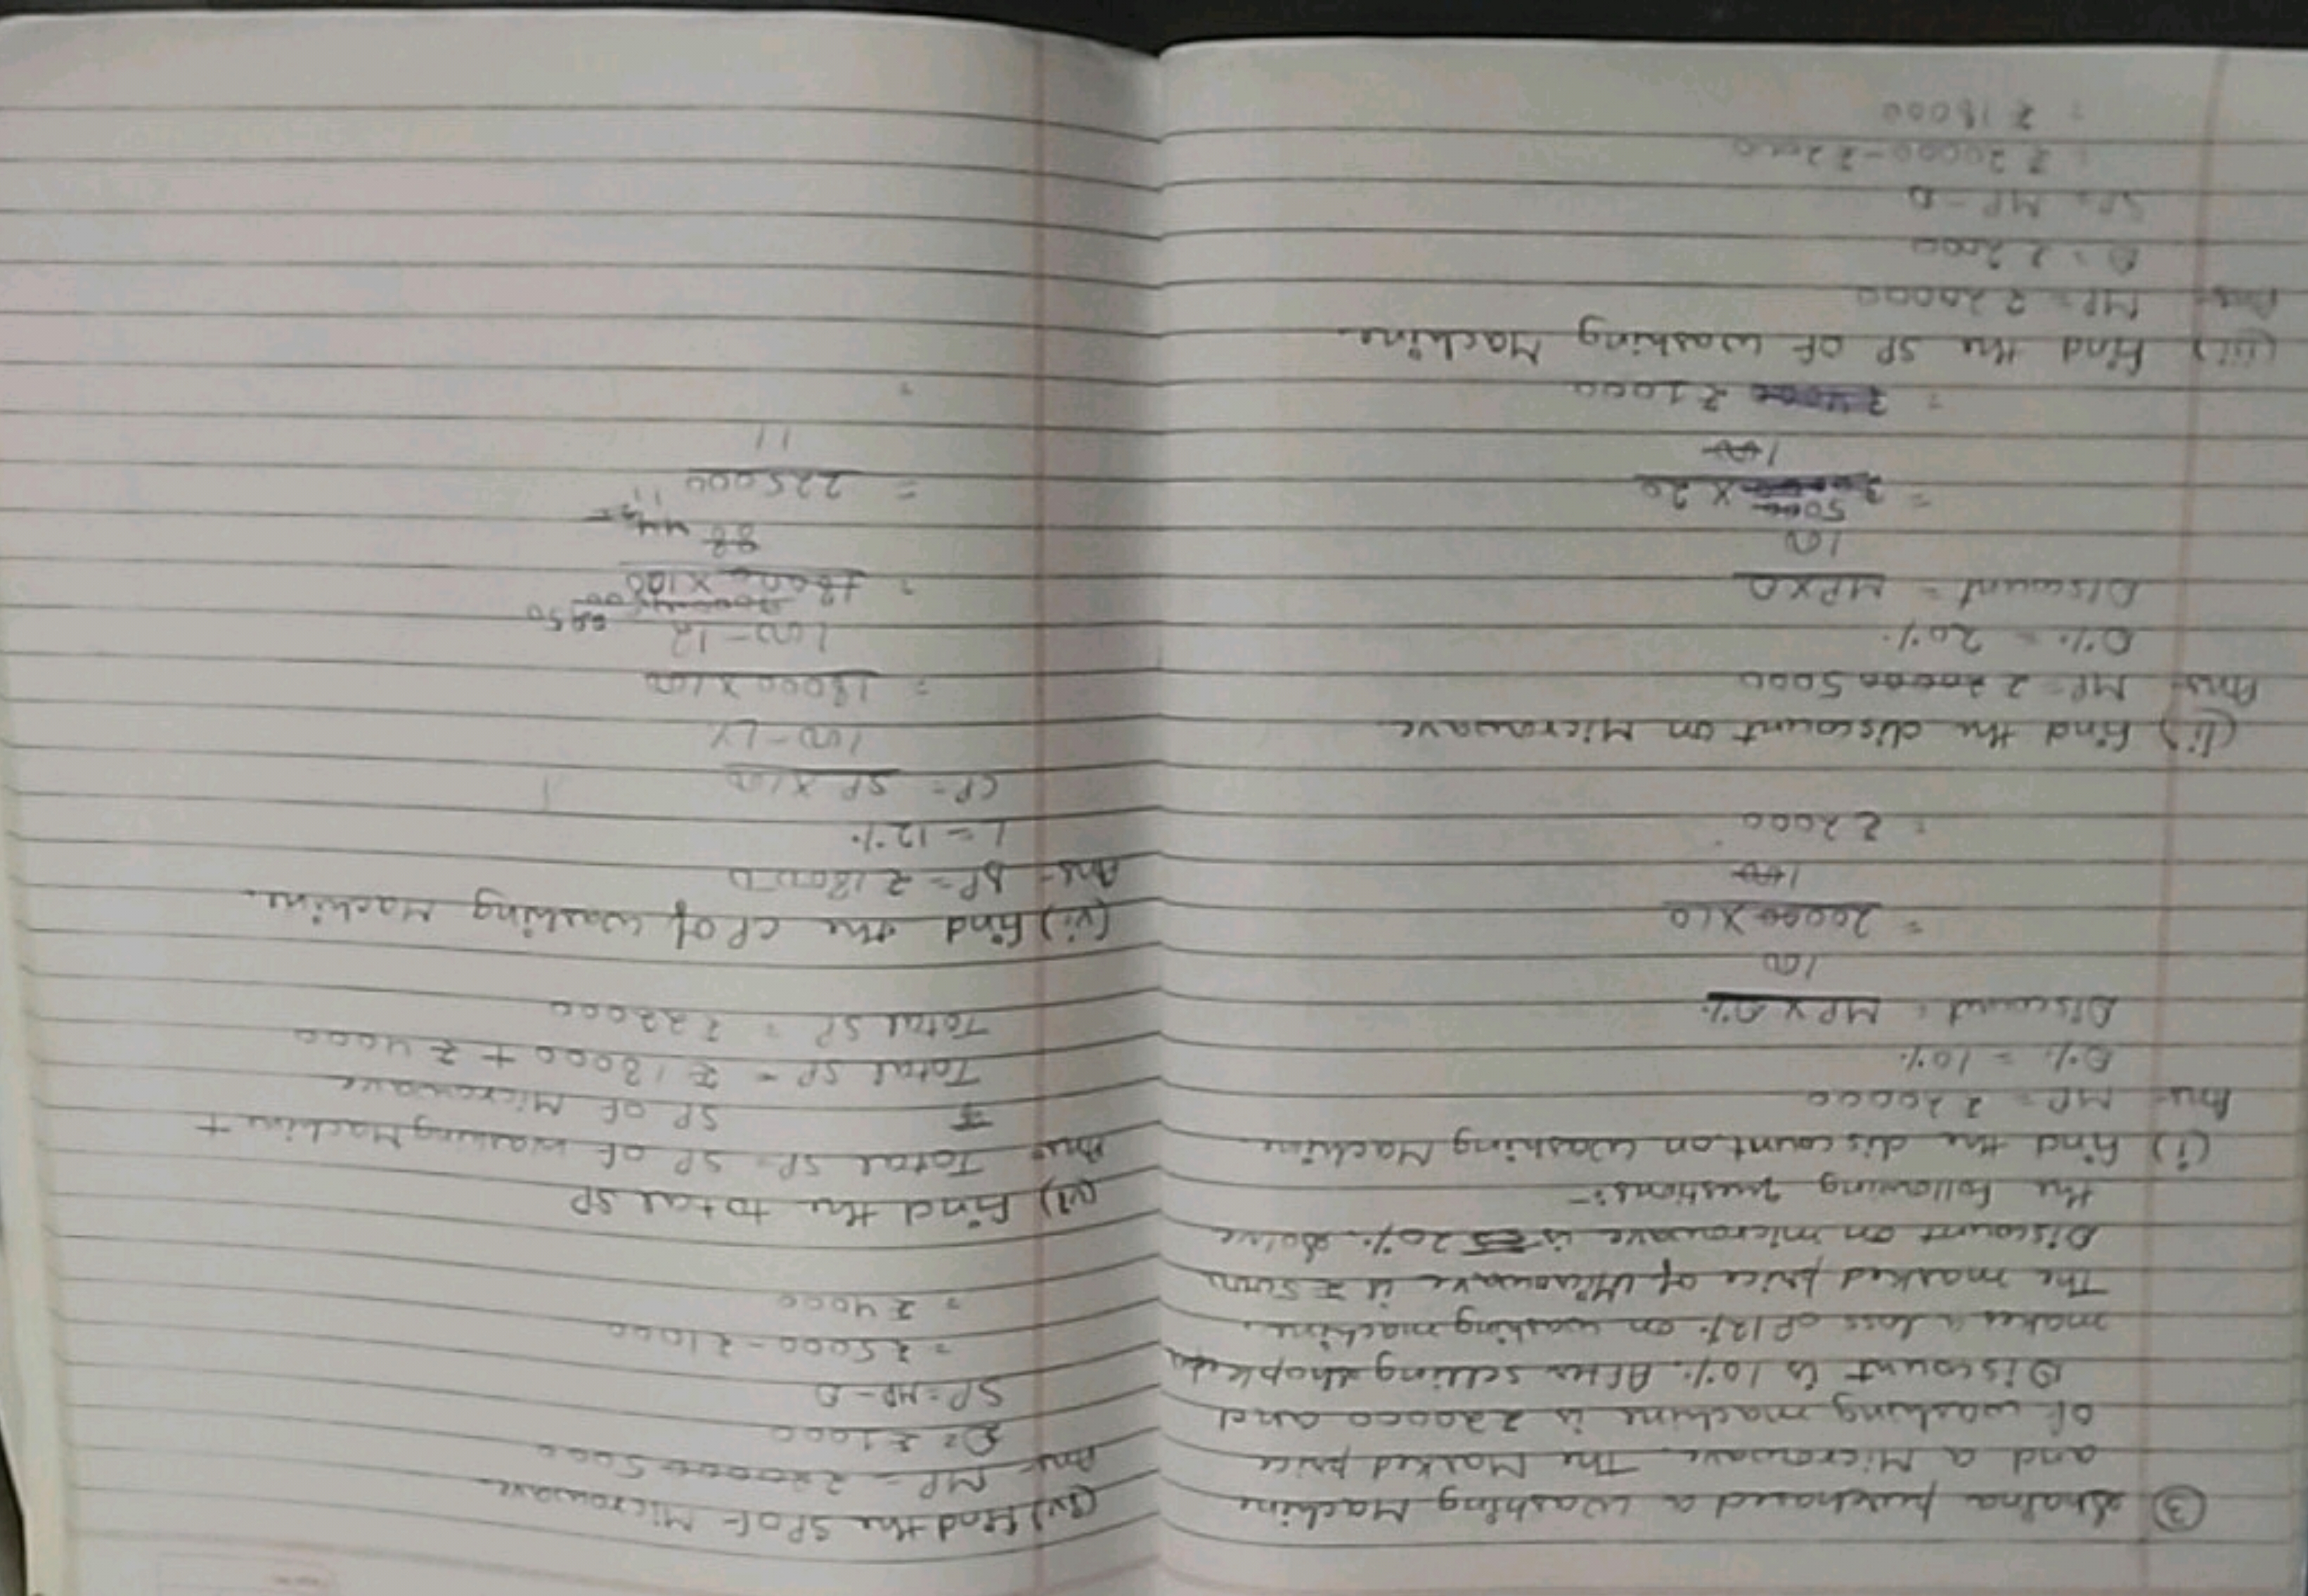 ③ Shaina purchased a washing Machine
and a Microwave. The Marked price
of washing machine is ₹20000 and
Discount is 10%. After selling shopkeeper
makes a loss of 12% on washing machine.
The marked price of Microwave is ₹5000
Discount on microwave is 20%. Solve
the following questions:-
(i) Find the discount on washing Machine
Ans- MP = ₹20000
D% = 10%
Discount = MP×D%
100
= 20000×10
100
= ₹2000
(ii) Find the discount on Microwave
Ans- MP= 5000
D% = 20%
Discount = MP×D
100
= 5000 × 20
100
= ₹1000
(iii) Find the SP of washing Machine.
Ans- MP= ₹20000
D = ₹2000
SP= MP-D
= ₹20000-₹2000
= ₹18000
(iv) Find the SP of Microwave
Ans- MP = 5000
D= ₹1000
SP=MP-D
= ₹5000-₹1000
= ₹4000
(v) Find the total SP
Ans- Total SP= SP of washing Machine +
SP of Microwave
Total SP = ₹18000 + ₹4000
Total SP = ₹22000
(vi) Find the CP of washing Machine.
Ans- SP= ₹18000
L = 12%
CP = SP×100
100-L%
= 18000×100
100-12
= 18000×100
88
= 225000
11
=